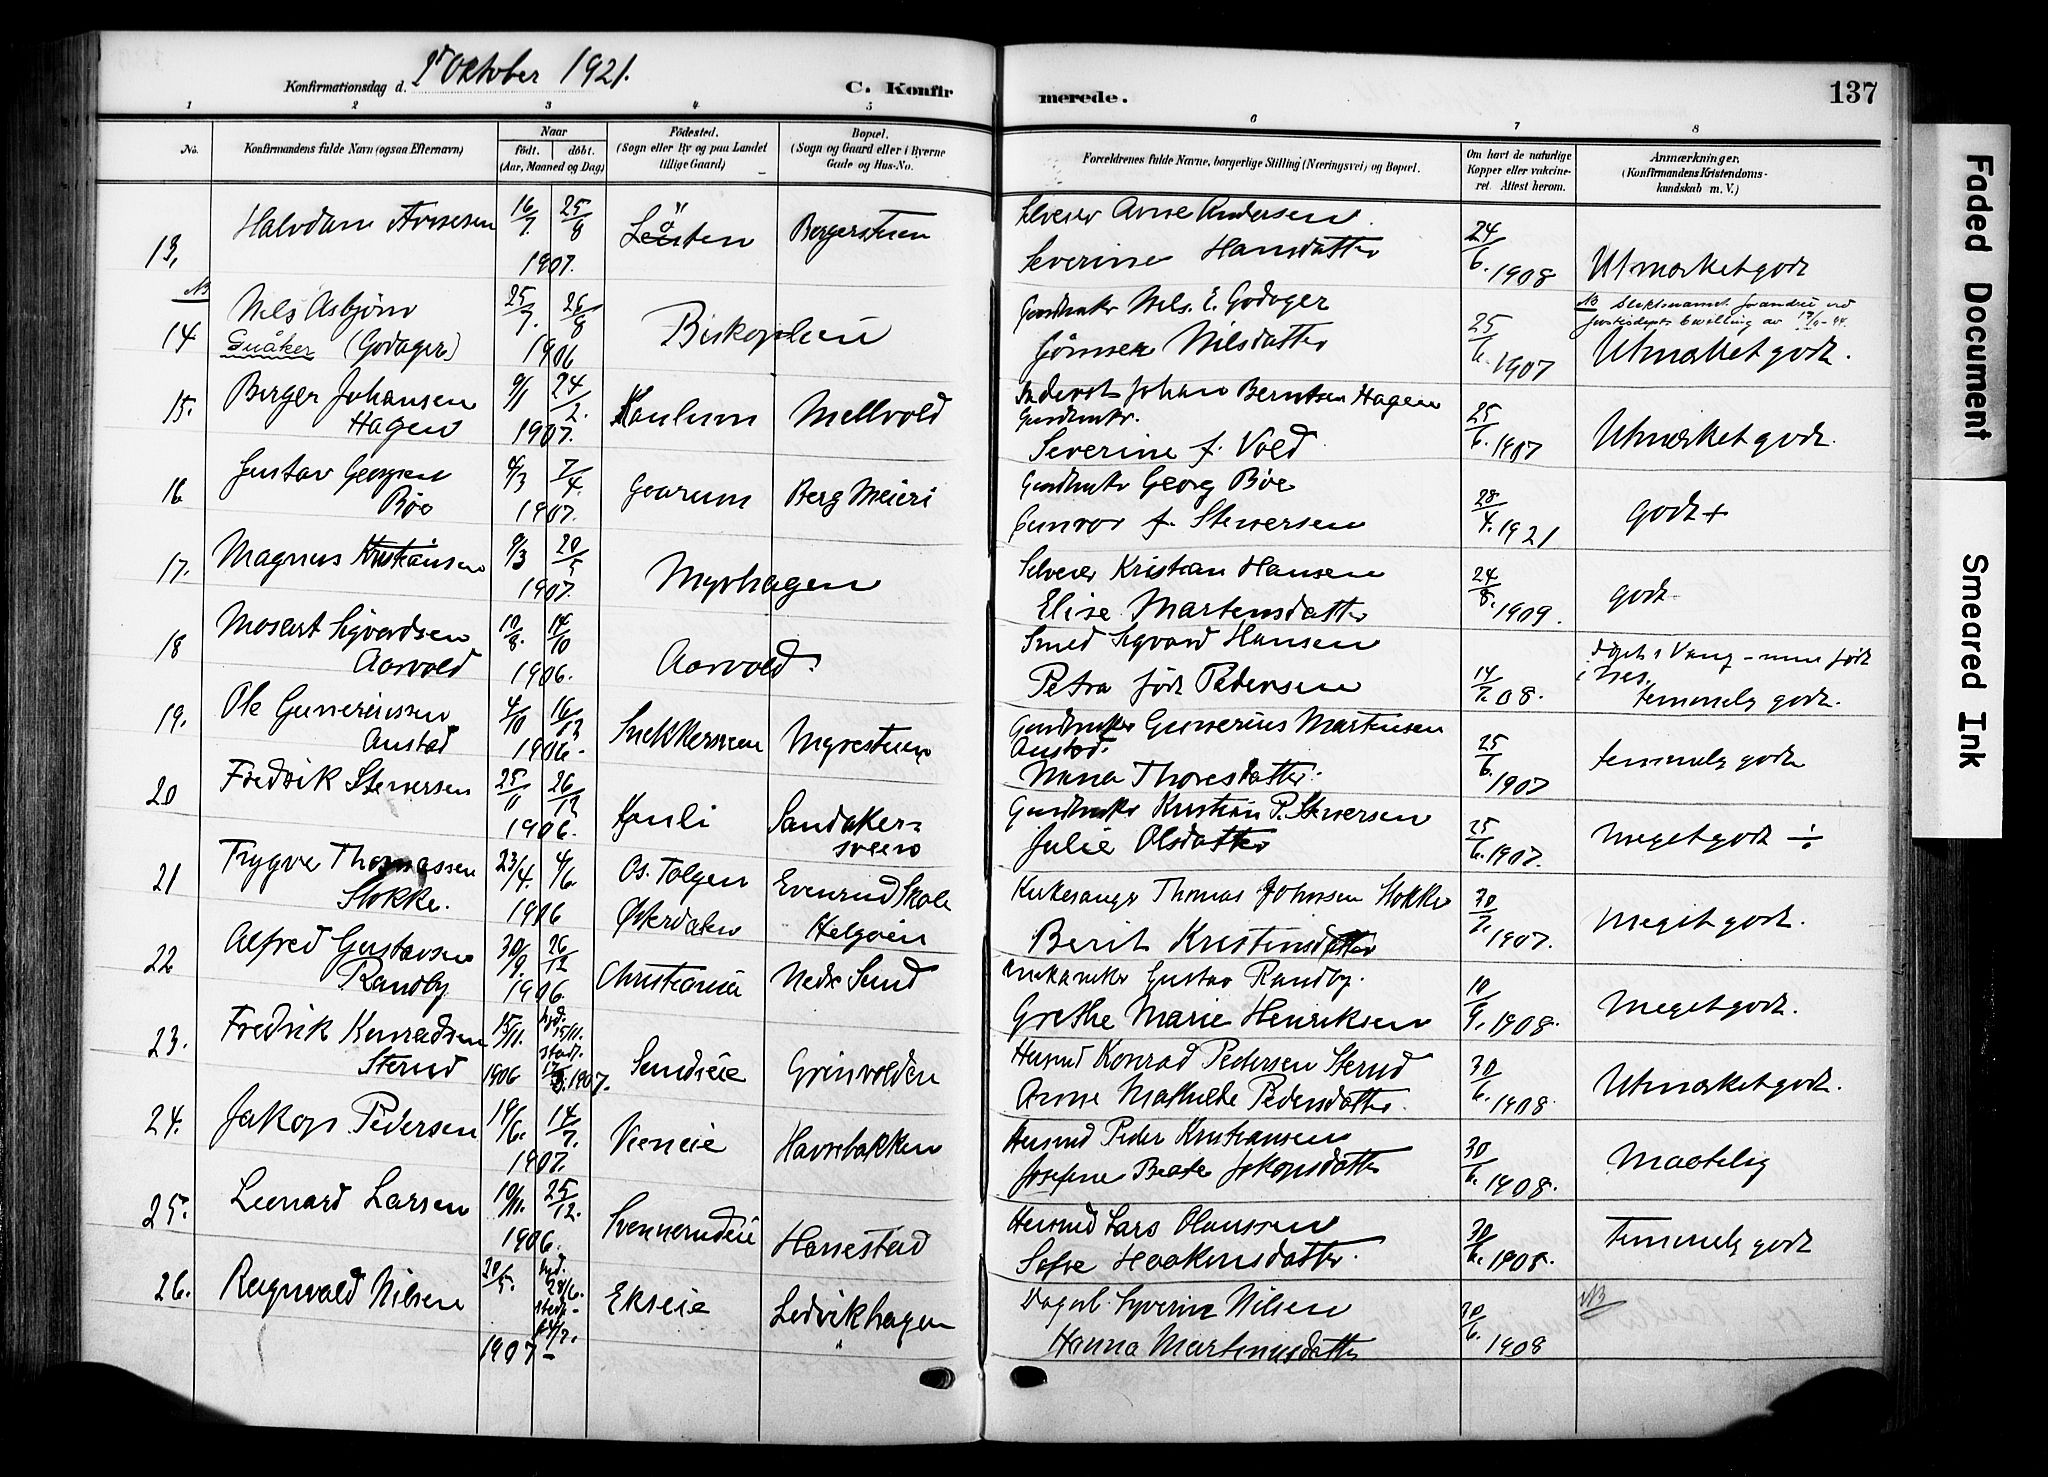 Konfirmationsdag d. 2 Oktober 1921.
C. Konfirmerede.
137
1 2 3 4 5 6 7 8
No.
Konfirmandens fulde Navn (ogsaa Efternavn)
Naar
født. døbt.
(Aar, Maaned og Dag)
Fødested.
(Sogn eller By og paa Landet
tillige Gaard)
Bopæl.
(Sogn og Gaard eller i Byerne
Gade og Hus-No.
Forældrenes fulde Navne, borgerlige Stilling (Næringsvei) og Bopæl.
Om havt de naturlige
Kopper eller vakcine-
ret. Attest herom.
Anmærkninger.
(Konfirmandens Kristendoms-
kundskab m. V.)
13. Halvdan Arnesen 16/7. 25/8 1907. Löiten Bergerstuen
Arne Andersen.
Severine Hansdatter 24/6. 1908 Utmærket godt
NB
14 Nils Asbjørn Guåker (Godager) 25/7. 26/8 1906 Biskoplien
Gaardbruker Nils. E. Godager
Nilsdatter 25/6. 1907
NB Slektsnavnet forandret ved
bevilling av
Utmærket godt.
15. Birger Johansen Hagen 9/1 24/2. 1907. Kaulum Mellvold
Johan Berntsen Hagen
Gardbruker.
Severine f. Vold 25/6. 1907 Utmærket godt.
16 Gustav Georgsen Bøe 4/3 7/4. 1907. Gaarum Berg Meieri
Gardbruker Georg Bøe
Gunvor f. Steversen 28/4. 1921 godt +
17. Magnus Kristiansen 9/3 20/5 1907. Myrhagen
Kristian Hansen
Elise Martensdatter 24/8. 1909. godt
18 Mosart Sigvardsen Aarvold 10/8. 14/10 1906. Aarvold.
Smed Sigvard Hansen
Petra født Pedersen 14/7. 08.
døpt i Vang - men født
i Nes.
temmelig godt.
19. Ole Gunneriussen Anstad 4/10 16/12 1906. Snekkersveen Myrestuen
Gardbruker Gunnerius Martinsen
Anstad.
Nina Thoresdatter. 25/6. 1907 temmelig godt
20 Fredrik Steversen 25/11 26/12 1906. Hauli Sandaker-
sveen
Gardbruker Kristian P. Steversen
Julie Olsdatter 25/6. 1907. meget godt ÷
21 Trygve Thomassen Stokke. 23/4. 4/6. 1906 Os. Tolgen Østerdalen Evenrud Skole Helgøien
Kirkesanger Thomas Johnsen Stokke
Berit Kristinsdatter 30/7. 1907. Meget godt.
22 Alfred Gustavsen Randby 30/9. 26/12 1906. Christiania Nedre Sund
Mekaniker Gustav Randby.
Grethe Marie Henriksen 10/9. 1908. Meget godt.
23. Fredrik Konradsen Sterud 15/11. 1906 hjd. 15/11. stadf. 1907. Sundseie Grinvolden
Husmd Konrad Pedersen Sterud
Anne Mathilde Pedersdatter. 30/6. 1908. Utmærket godt.
24. Jakop Pedersen 19/6. 14/7. 1907. Vieneie Havrebakken
Husmd Peder Kristiansen
Josefine Beate Jakopsdatter 30/6. 1908. Maatelig
25. Leonard Larsen 19/11. 25/12. 1906. Svennerudeie Hanestad
Husmd Lars Olaussen
Sofie Haakensdatter. 30/6. 1908. Temmelig godt
26. Ragnvald Nilsen 20/5. hjd. 28/6. stadf. 1907 Ekseie Ledvikhagen
Dagarb. Syverin Nilsen
Hanna Martinusdatter 30/6. 1908 NB
Faded Document
Smeared Ink